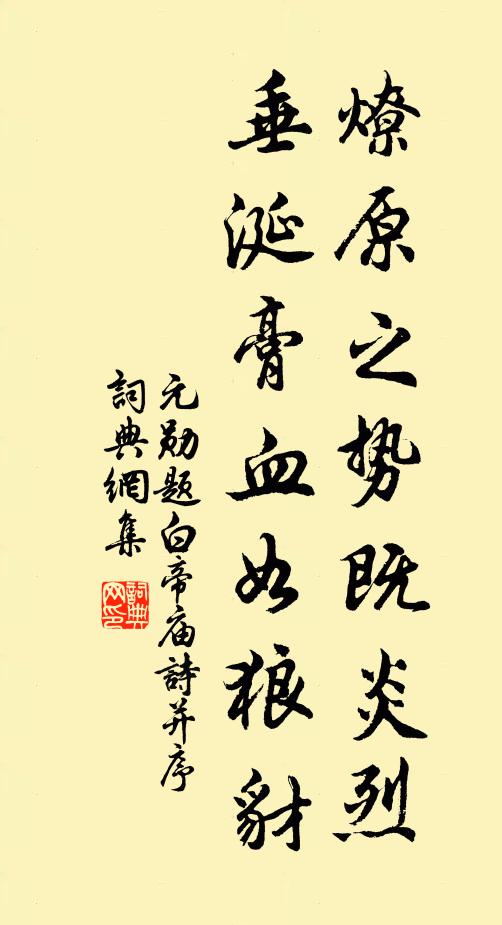 燎原之势既炎烈
垂涎膏血如狼豺
元勋题白帝庙詩并序
詞典網集
詞典网印